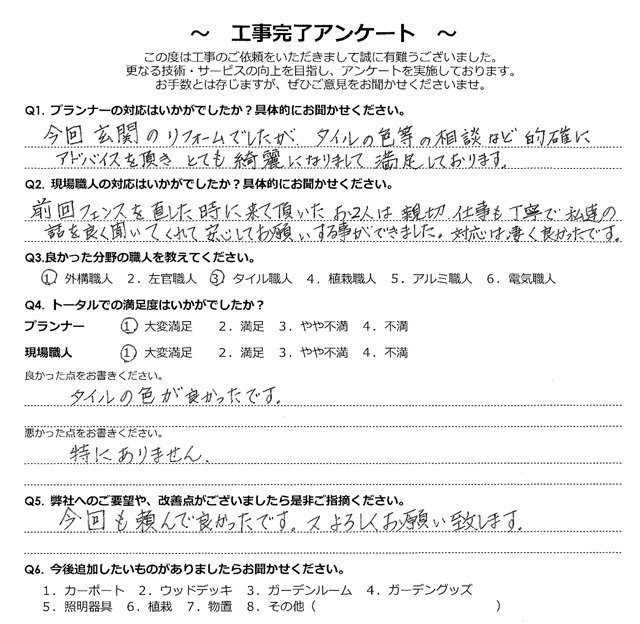 ～ 工事完了アンケート ～
この度は工事のご依頼をいただきまして誠に有難うございました。
更なる技術・サービスの向上を目指し、アンケートを実施しております。
お手数とは存じますが、ぜひご意見をお聞かせくださいませ。
Q1. プランナーの対応はいかがでしたか？具体的にお聞かせください。
今回玄関のリフォームでしたが、タイルの色等の相談など的確に
アドバイスを頂き とても綺麗になりまして 満足しております。
Q2. 現場職人の対応はいかがでしたか？具体的にお聞かせください。
前回フェンスを直した時に来て頂いた お2人は 親切 仕事も丁寧で私達の
話を良く聞いてくれて安心してお願いする事ができました。対応は凄く良かったです。
Q3.良かった分野の職人を教えてください。
① 外構職人 2．左官職人 ③ タイル職人 4．植栽職人 5．アルミ職人 6．電気職人
Q4. トータルでの満足度はいかがでしたか？
プランナー ① 大変満足 2．満足 3．やや不満 4．不満
現場職人 ① 大変満足 2．満足 3．やや不満 4．不満
良かった点をお書きください。
タイルの色が良かったです。
悪かった点をお書きください。
特にありません。
Q5. 弊社へのご要望や、改善点がございましたら是非ご指摘ください。
今回も頼んで良かったです。又よろしくお願い致します。
Q6. 今後追加したいものがありましたらお聞かせください。
1．カーポート 2．ウッドデッキ 3．ガーデンルーム 4．ガーデングッズ
5．照明器具 6．植栽 7．物置 8．その他（ ）